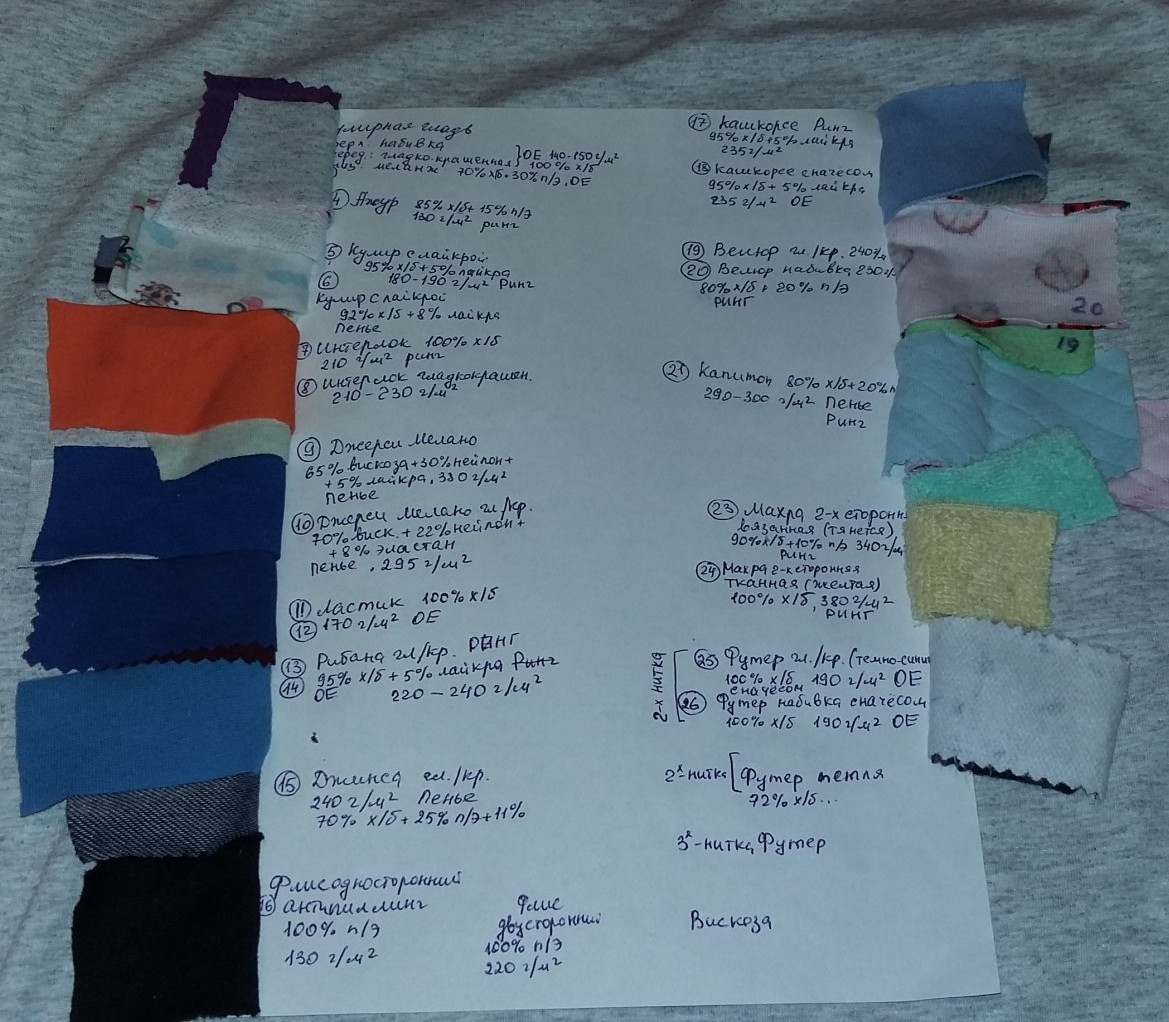 улирная гладь
верх: набивка
серед.: гладко.крашенная } ОЕ 140-150 г/м²
100% х/б
низ: меланж 70% х/б+30% п/э, ОЕ
4 Ажур 85% х/б+ 15% п/э
130 г/м² ринг
5 Кулир с лайкрой
95% х/б+5% лайкра
6 180-190 г/м² Ринг
Кулир с лайкрой
92% х/б+8% лайкра
Пенье
7 Интерлок 100% х/б
210 г/м² ринг
8 Интерлок гладкокрашен.
210-230 г/м²
9 Джерси Мелано
65% вискоза+30% нейлон+
+5% лайкра, 330 г/м²
Пенье
10 Джерси Мелано гл/кр.
70% виск.+22% нейлон+
+8% эластан
Пенье, 295 г/м²
11 Ластик 100% х/б
12 170 г/м² ОЕ
13 Рибана гл/кр. РИНГ
95% х/б+5% лайкра Ринг
14 ОЕ 220-240 г/м²
15 Джинса гл./кр.
240 г/м² Пенье
70% х/б+25% п/э+11%
Флис односторонний
16 антипиллинг
100% п/э
130 г/м²
Флис
двусторонний
100% п/э
220 г/м²
17 Кашкорсе Ринг
95% х/б+5% лайкра
235 г/м²
18 Кашкорсе с начёсом
95% х/б+ 5% лайкра
235 г/м² ОЕ
19 Велюр гл./кр. 240 г/м
20 Велюр набивка 230 г/
80% х/б+ 20% п/э
РИНГ
20
19
21 Капитон 80% х/б+20% п
290-300 г/м² Пенье
Ринг
23 Махра 2-х сторонн
вязанная (тянется)
90% х/б+10% п/э 340 г/м
РИНГ
24 Махра 2-х сторонняя
тканная (желтая)
100% х/б, 380 г/м²
РИНГ
2-х нитка
25 Футер гл./кр. (темно-сини
100% х/б 190 г/м² ОЕ
с начёсом
26 Футер набивка с начёсом
100% х/б 190 г/м² ОЕ
2х-нитка [ Футер петля
72% х/б...
3х-нитка Футер
Вискоза